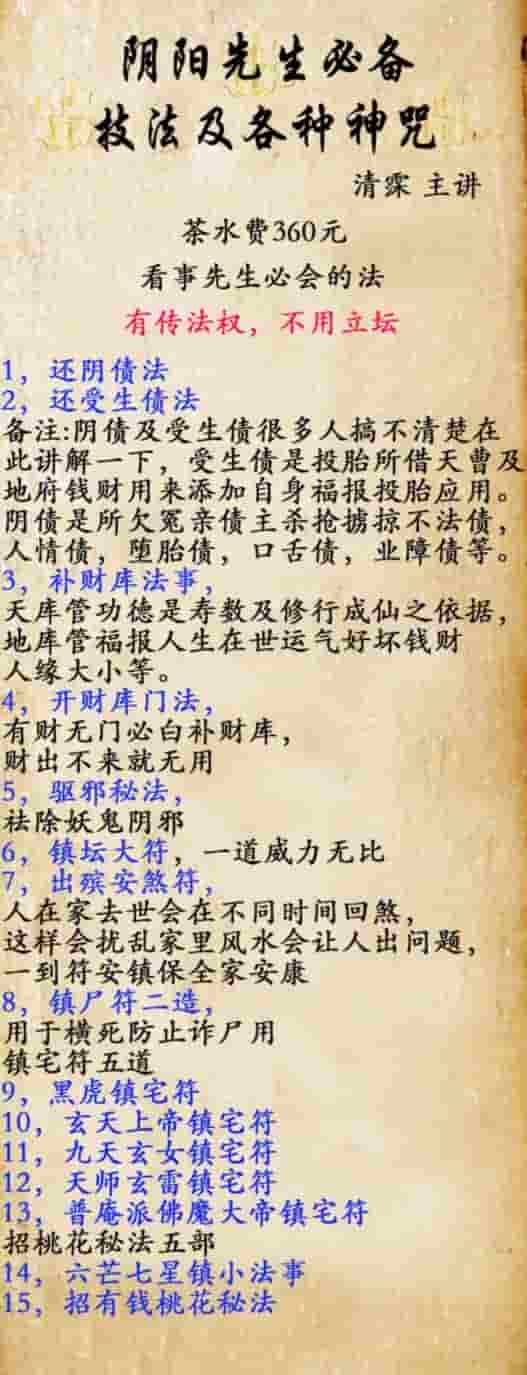 阴阳先生必备
技法及各种神咒
清霂 主讲
茶水费360元
看事先生必会的法
有传法权，不用立坛
1，还阴债法
2，还受生债法
备注:阴债及受生债很多人搞不清楚在
此讲解一下，受生债是投胎所借天曹及
地府钱财用来添加自身福报投胎应用。
阴债是所欠冤亲债主杀抢掳掠不法债，
人情债，堕胎债，口舌债，业障债等。
3，补财库法事，
天库管功德是寿数及修行成仙之依据，
地库管福报人生在世运气好坏钱财
人缘大小等。
4，开财库门法，
有财无门必白补财库，
财出不来就无用
5，驱邪秘法，
祛除妖鬼阴邪
6，镇坛大符，一道威力无比
7，出殡安煞符，
人在家去世会在不同时间回煞，
这样会扰乱家里风水会让人出问题，
一到符安镇保全家安康
8，镇尸符二造，
用于横死防止诈尸用
镇宅符五道
9，黑虎镇宅符
10，玄天上帝镇宅符
11，九天玄女镇宅符
12，天师玄雷镇宅符
13，普庵派佛魔大帝镇宅符
招桃花秘法五部
14，六芒七星镇小法事
15，招有钱桃花秘法